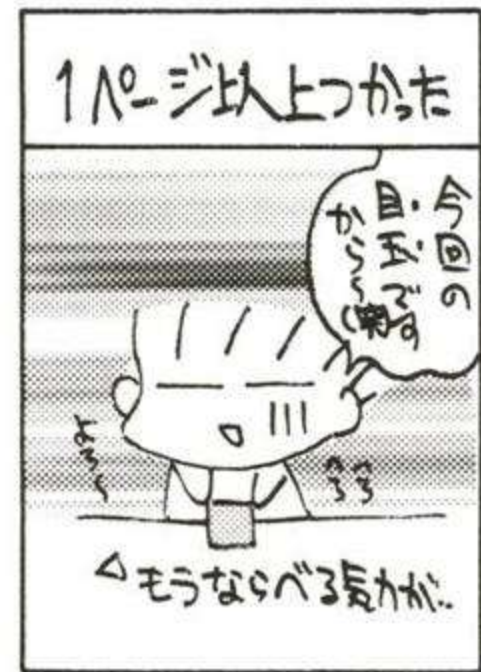 1ページ以上つかった
今回の
目玉です
から〜(笑)
へろへろ
よろ〜
△もうならべる気力が‥